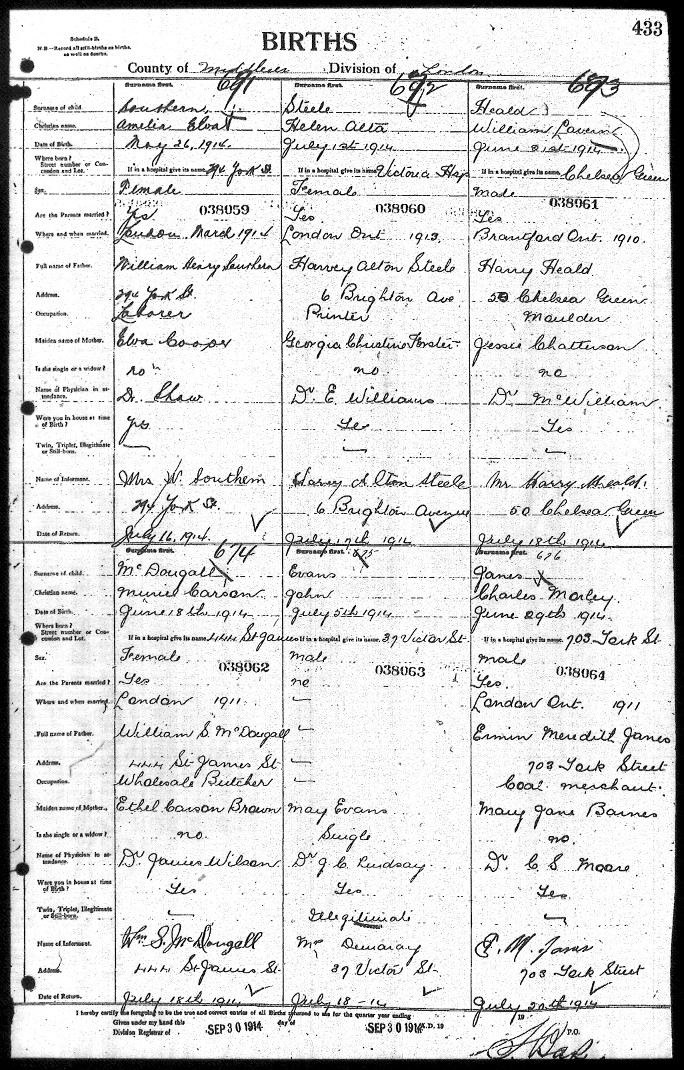 433
Schedule B.
N.B.—Record all still-births as births, as well as deaths.
BIRTHS
County of Middlesex Division of London
Surname first. 671 Surname first. 672 Surname first. 673
Surname of child. Southern Steele Heald
Christian name. Amelia Elva Helen Alta William Lavern
Date of Birth. May 26, 1914. July 1st 1914 June 21st 1914
Where born? Street number or Concession and Lot. If in a hospital give its name. 294 York St. If in a hospital give its name Victoria Hsp If in a hospital give its name. Chelsea Green
Sex. Female Female Male
038059 038060 038061
Are the Parents married? Yes Yes Yes
Where and when married. London March 1914 London Ont 1913. Brantford Ont. 1910.
Full name of Father. William Henry Southern Harvey Alton Steele Harry Heald.
Address. 294 York St. 6 Brighton Ave 50 Chelsea Green
Occupation. Laborer Printer Moulder
Maiden name of Mother. Elva Cooper Georgia Christine Forster Jessie Chatterson
Is she single or a widow? no no no
Name of Physician in attendance. Dr Shaw Dr E Williams Dr McWilliam
Were you in house at time of Birth? yes Yes Yes
Twin, Triplet, Illegitimate or Still-born. — — —
Name of Informant. Mrs W. Southern Harvey Alton Steele Mr Harry Heald.
Address. 294 York St. 6 Brighton Avenue 50 Chelsea Green
Date of Return. July 16, 1914. July 17th 1914 July 18th 1914
Surname first. 674 Surname first. 675 Surname first. 676
Surname of child. McDougall Evans Janes
Christian name. Muriel Carson John Charles Morley.
Date of Birth. June 18th 1914 July 5th 1914 June 29th 1914.
Where born? Street number or Concession and Lot. If in a hospital give its name. 444 St James If in a hospital give its name. 37 Victor St. If in a hospital give its name. 703 York St
Sex. Female male male
038062 038063 038064
Are the Parents married? Yes no Yes.
Where and when married. London 1911 — London Ont. 1911
Full name of Father. William S. McDougall — Ermin Meredith Janes
Address. 444 St James St — 703 York Street
Occupation. Wholesale Butcher — Coal merchant.
Maiden name of Mother. Ethel Carson Brown May Evans Mary Jane Barnes
Is she single or a widow? no. Single no.
Name of Physician in attendance. Dr James Wilson Dr J C Lindsay Dr C S Moore
Were you in house at time of Birth? Yes Yes Yes
Twin, Triplet, Illegitimate or Still-born. — Illegitimate —
Name of Informant. Wm S. McDougall Mrs Demaray E. M. Janes
Address. 444 St James St. 37 Victor St. 703 York Street
Date of Return. July 18th 1914 July 18-14 July 20th 1914
I hereby certify the foregoing to be the true and correct entries of all Births returned to me for the quarter ending 19
Given under my hand this SEP 30 1914 day of SEP 30 1914 A.D. 19
Division Registrar of P.O.